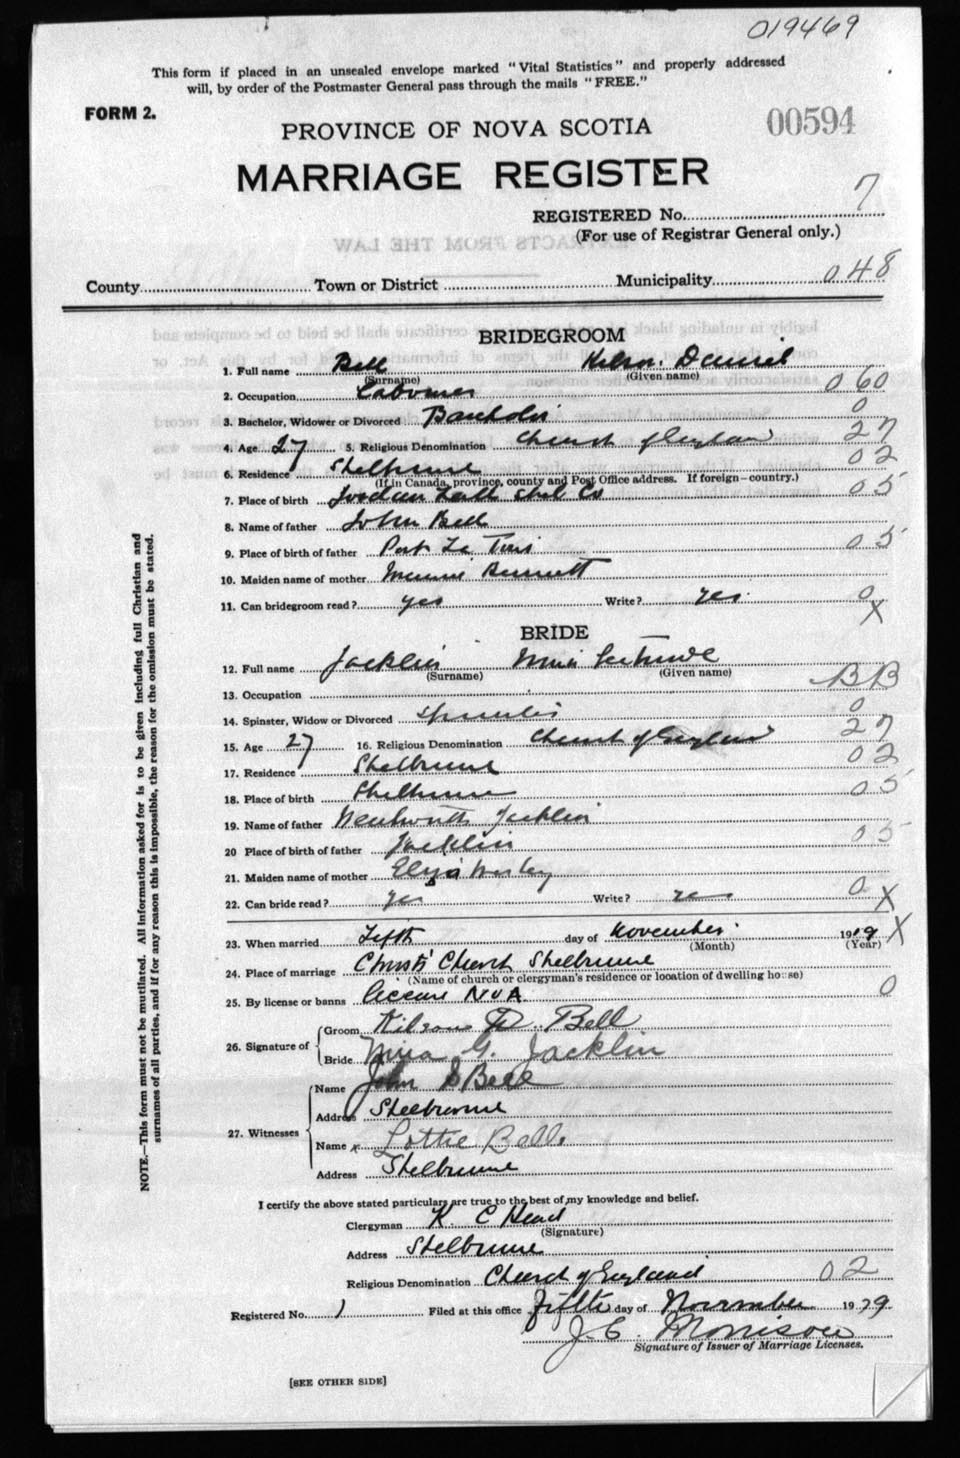 019469
This form if placed in an unsealed envelope marked "Vital Statistics" and properly addressed
will, by order of the Postmaster General pass through the mails "FREE."
FORM 2.
00594
PROVINCE OF NOVA SCOTIA
MARRIAGE REGISTER
REGISTERED No. 7
(For use of Registrar General only.)
County Town or District Municipality 048
BRIDEGROOM
1. Full name Bell Daniel
(Surname) (Given name)
2. Occupation Labourer 0 60
3. Bachelor, Widower or Divorced Bachelor 0
4. Age 27 5. Religious Denomination Church of England 27
6. Residence Shelburne 02
(If in Canada, province, county and Post Office address. If foreign - country.)
7. Place of birth Jordan Falls Shel Co 05
8. Name of father John Bell
9. Place of birth of father Port La Tour 05
10. Maiden name of mother Bennett
11. Can bridegroom read? yes Write? yes. 0
X
BRIDE
12. Full name Jacklin Gertrude
(Surname) (Given name)
13. Occupation BB
14. Spinster, Widow or Divorced Spinster 0
15. Age 27 16. Religious Denomination Church of England 27
17. Residence Shelburne 02
18. Place of birth Shelburne 05
19. Name of father Wentworth Jacklin
20 Place of birth of father Jacklin 05
21. Maiden name of mother Eliza
22. Can bride read? yes Write? yes 0
X
23. When married Fifth day of November 1919 X
(Month) (Year)
24. Place of marriage Christ Church Shelburne
(Name of church or clergyman's residence or location of dwelling house)
25. By license or banns License 0
26. Signature of Groom D. Bell
Bride Nina G. Jacklin
27. Witnesses Name John S Bell
Address Shelburne
Name x Lottie Bell.
Address Shelburne
I certify the above stated particulars are true to the best of my knowledge and belief.
Clergyman K. C Head
(Signature)
Address Shelburne
Religious Denomination Church of England 02
Registered No. 1 Filed at this office fifth day of November 19
J. C. Morrison
Signature of Issuer of Marriage Licenses.
[SEE OTHER SIDE]
NOTE.—This form must not be mutilated. All information asked for is to be given including full Christian and
surnames of all parties, and if for any reason this is impossible, the reason for the omission must be stated.